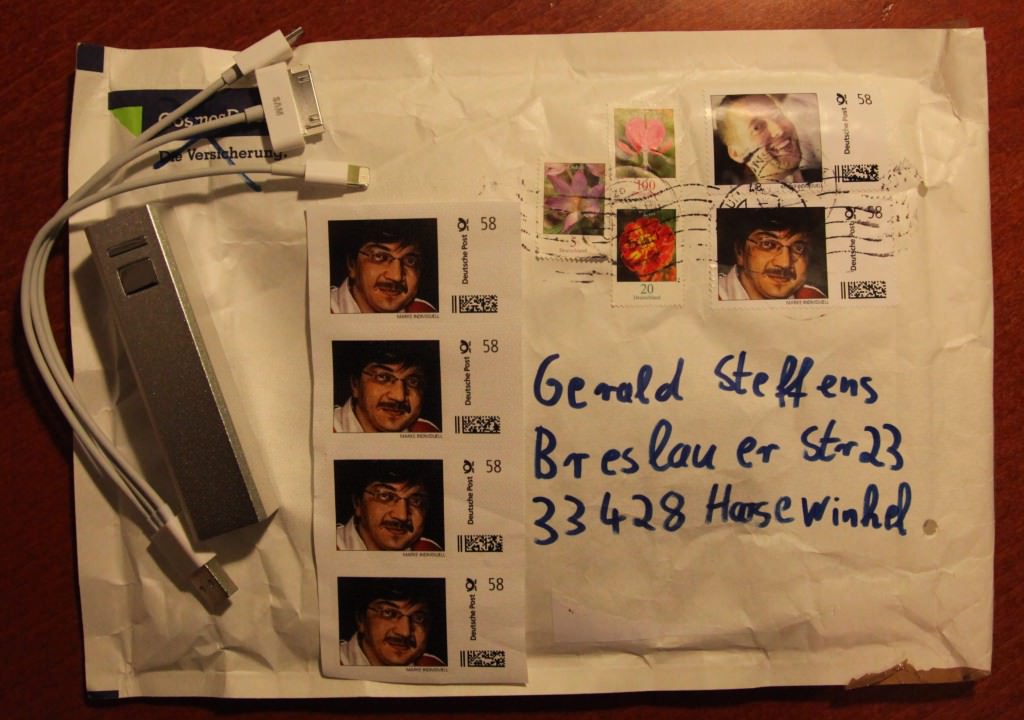 Die Versicherung.
SAM
58
Deutsche Post
MARKE INDIVIDUELL
58
Deutsche Post
MARKE INDIVIDUELL
58
Deutsche Post
MARKE INDIVIDUELL
58
Deutsche Post
MARKE INDIVIDUELL
100
5
20
Deutschland
58
Deutsche Post
58
Deutsche Post
MARKE INDIVIDUELL
Gerald Steffens
Breslauer Str 23
33428 Harsewinkel